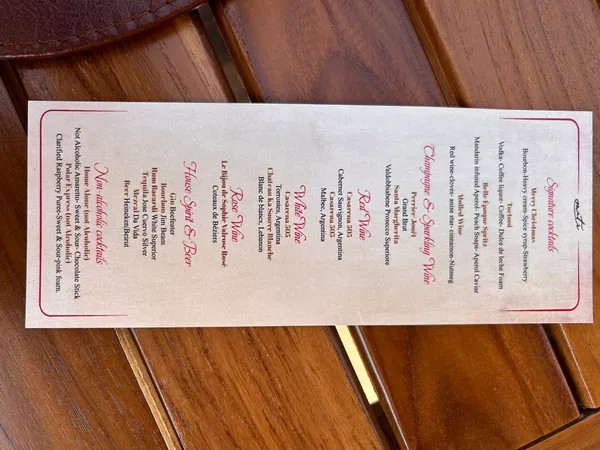 Signature cocktails
Merry Christmas
Bourbon-Heavy cream-Spice syrup-Strawberry
Toctoni
Vodka- Coffee liquor- Coffee- Dulce de leche Foam
Belle Epoque Spritz
Mandarin infused Aperol- Peach Snaps- Aperol Caviar
Mulled Wine
Red wine-cloves- anise star- cinnamon-Nutmeg
Champagne & Sparkling Wine
Perrier Jouët
Grand Brut
Santa Margherita
Valdobbiadene Prosecco Superiore
Red Wine
Casarena 505
Cabernet Sauvignon, Argentina
Casarena 505
Malbec, Argentina
White Wine
Casarena 505
Torrontes, Argentina
Blanc de blancs, Lebanon
Rose Wine
Le Bijou de Sophie Valrose Rosé
Coteaux de Béziers
House Spirit & Beer
Gin Beefeater
Bourbon Jim Beam
Rum Bacardi White Superior
Tequila Jose Cuervo Silver
Mezcal Da Vida
Beer Heineken/Burat
Non-alcoholic cocktails
Home Alone (not Alcoholic)
Not Alcoholic Amaretto- Sweet & Sour- Chocolate Stick
Polar Express (not Alcoholic)
Clarified Raspberry Puree-Sweet & Sour-pink foam.